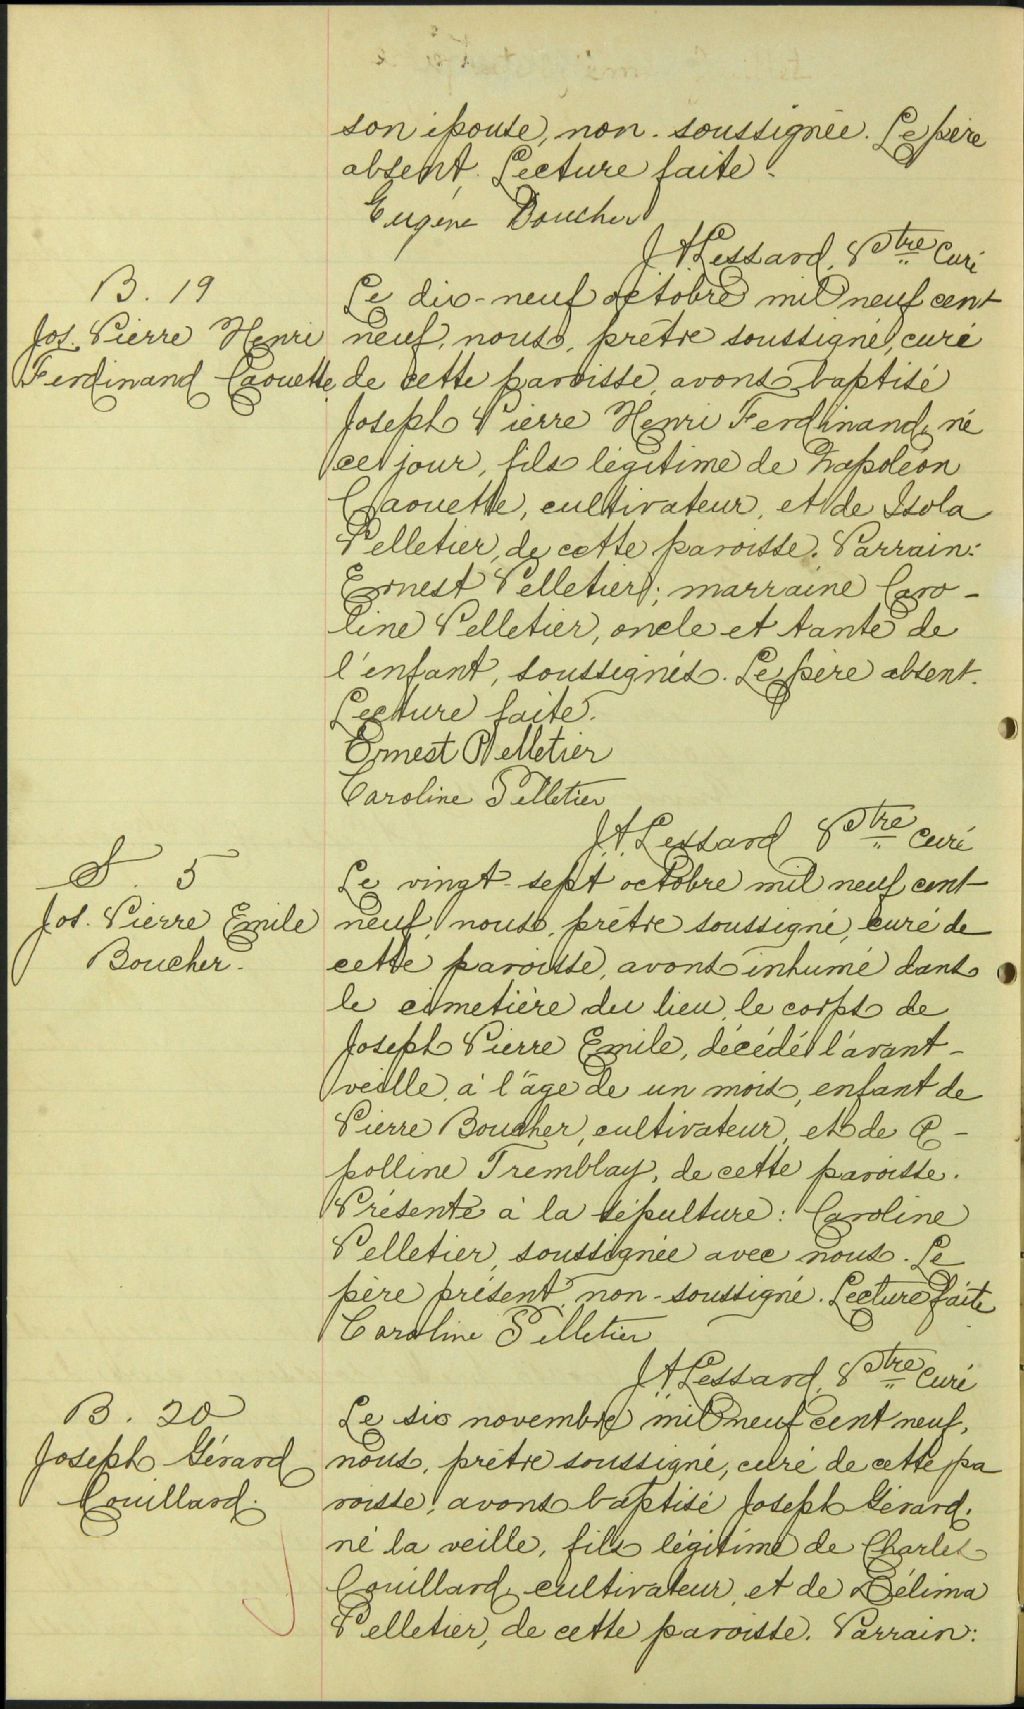 son épouse, non-soussignée. Le père
absent. Lecture faite.
Eugène Boucher
J. A. Lessard, Ptre Curé
B. 19
Jos. Pierre Henri
Ferdinand Caouette.
Le dix-neuf octobre mil neuf cent
neuf, nous, prêtre soussigné, curé
de cette paroisse, avons baptisé
Joseph Pierre Henri Ferdinand, né
ce jour, fils légitime de Napoléon
Caouette, cultivateur, et de Isola
Pelletier, de cette paroisse. Parrain:
Ernest Pelletier; marraine Caro-
line Pelletier, oncle et tante de
l'enfant, soussignés. Le père absent.
Lecture faite.
Ernest Pelletier
Caroline Pelletier
J. A. Lessard Ptre Curé
S. 5
Jos. Pierre Emile
Boucher.
Le vingt-sept octobre mil neuf cent
neuf, nous, prêtre soussigné, curé de
cette paroisse, avons inhumé dans
le cimetière du lieu, le corps de
Joseph Pierre Emile, décédé l'avant-
veille, à l'âge de un mois, enfant de
Pierre Boucher, cultivateur, et de A-
polline Tremblay, de cette paroisse.
Présente à la sépulture: Caroline
Pelletier, soussignée avec nous. Le
père présent, non-soussigné. Lecture faite
Caroline Pelletier
J. A. Lessard, Ptre Curé
B. 20
Joseph Gérard
Couillard.
Le six novembre mil neuf cent neuf,
nous, prêtre soussigné, curé de cette pa
roisse, avons baptisé Joseph Gérard,
né la veille, fils légitime de Charles
Couillard, cultivateur, et de Zélima
Pelletier, de cette paroisse. Parrain: